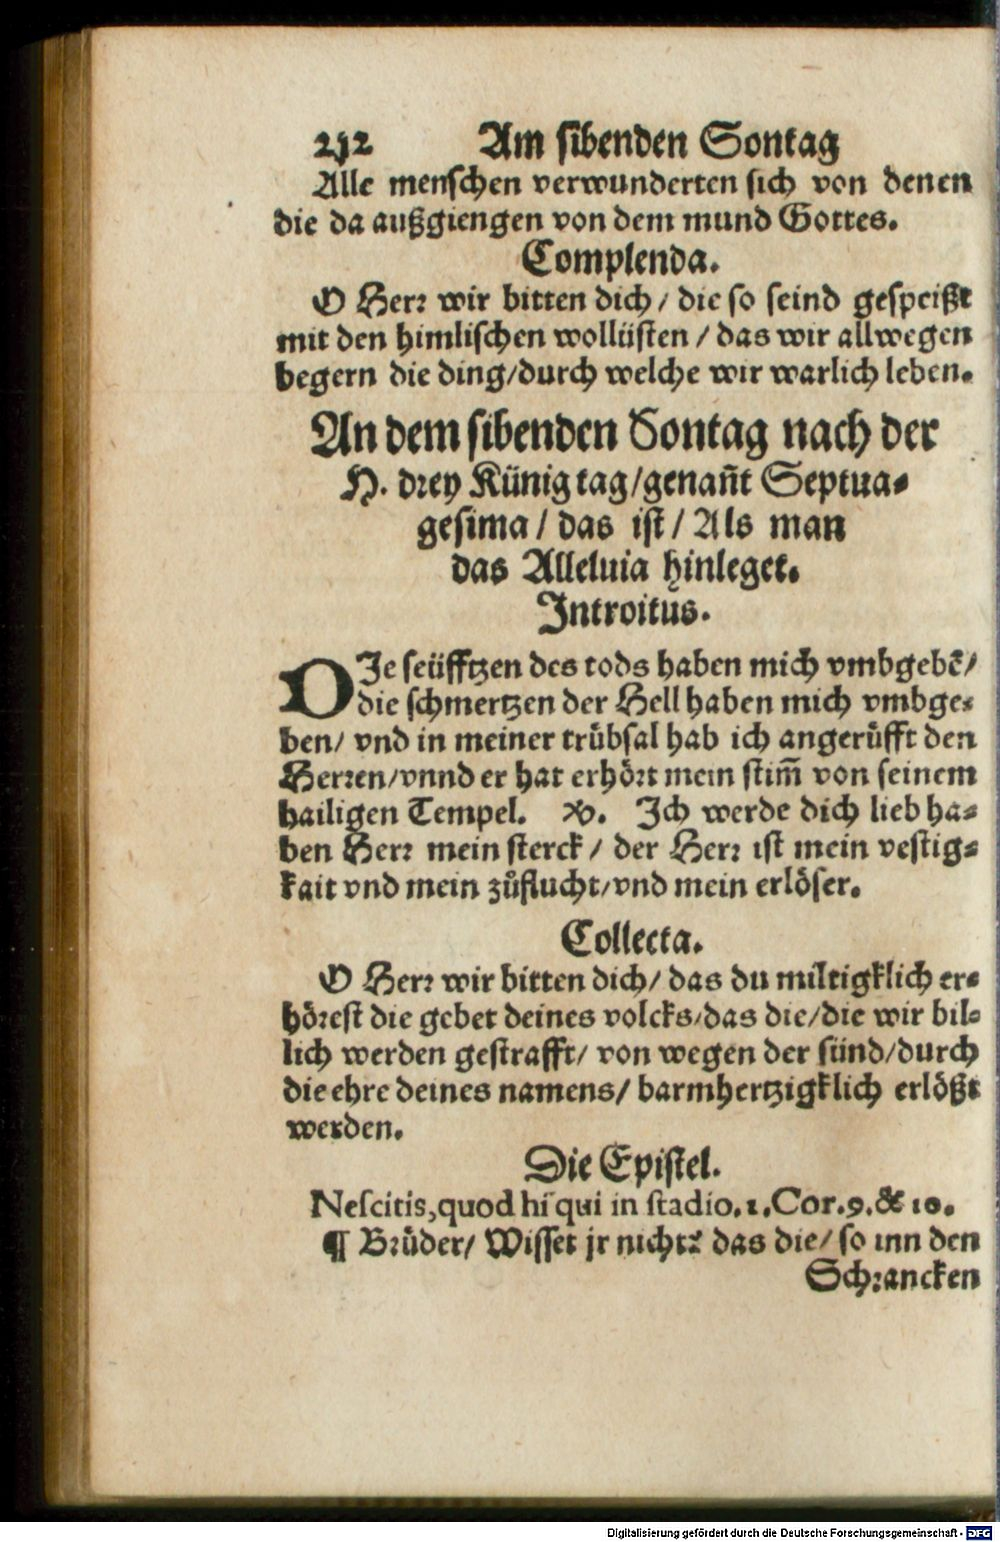 232 Am sibenden Sontag
Alle menschen verwunderten sich von denen
die da außgiengen von dem mund Gottes.
Complenda.
O Herr wir bitten dich / die so seind gespeißt
mit den himlischen wollüsten / das wir allwegen
begern die ding/durch welche wir warlich leben.
An dem sibenden Sontag nach der
H. drey Künig tag/genañt Septua-
gesima / das ist / Als man
das Alleluia hinleget.
Introitus.
DIe seüfftzen des tods haben mich vmbgebē/
die schmertzen der Hell haben mich vmbge-
ben/ vnd in meiner trůbsal hab ich angerůfft den
Herren/vnnd er hat erhört mein stim̃ von seinem
hailigen Tempel. ℣. Ich werde dich lieb ha-
ben Herr mein sterck / der Herr ist mein vestig-
kait vnd mein zůflucht/vnd mein erlöser.
Collecta.
O Herr wir bitten dich/ das du miltigklich er-
hörest die gebet deines volcks/das die/die wir bil-
lich werden gestrafft/ von wegen der sünd/durch
die ehre deines namens/ barmhertzigklich erlößt
werden.
Die Epistel.
Nescitis, quod hi qui in stadio. 1. Cor. 9. & 10.
¶ Brüder/ Wisset jr nicht? das die/ so inn den
Schrancken
Digitalisierung gefördert durch die Deutsche Forschungsgemeinschaft - DFG